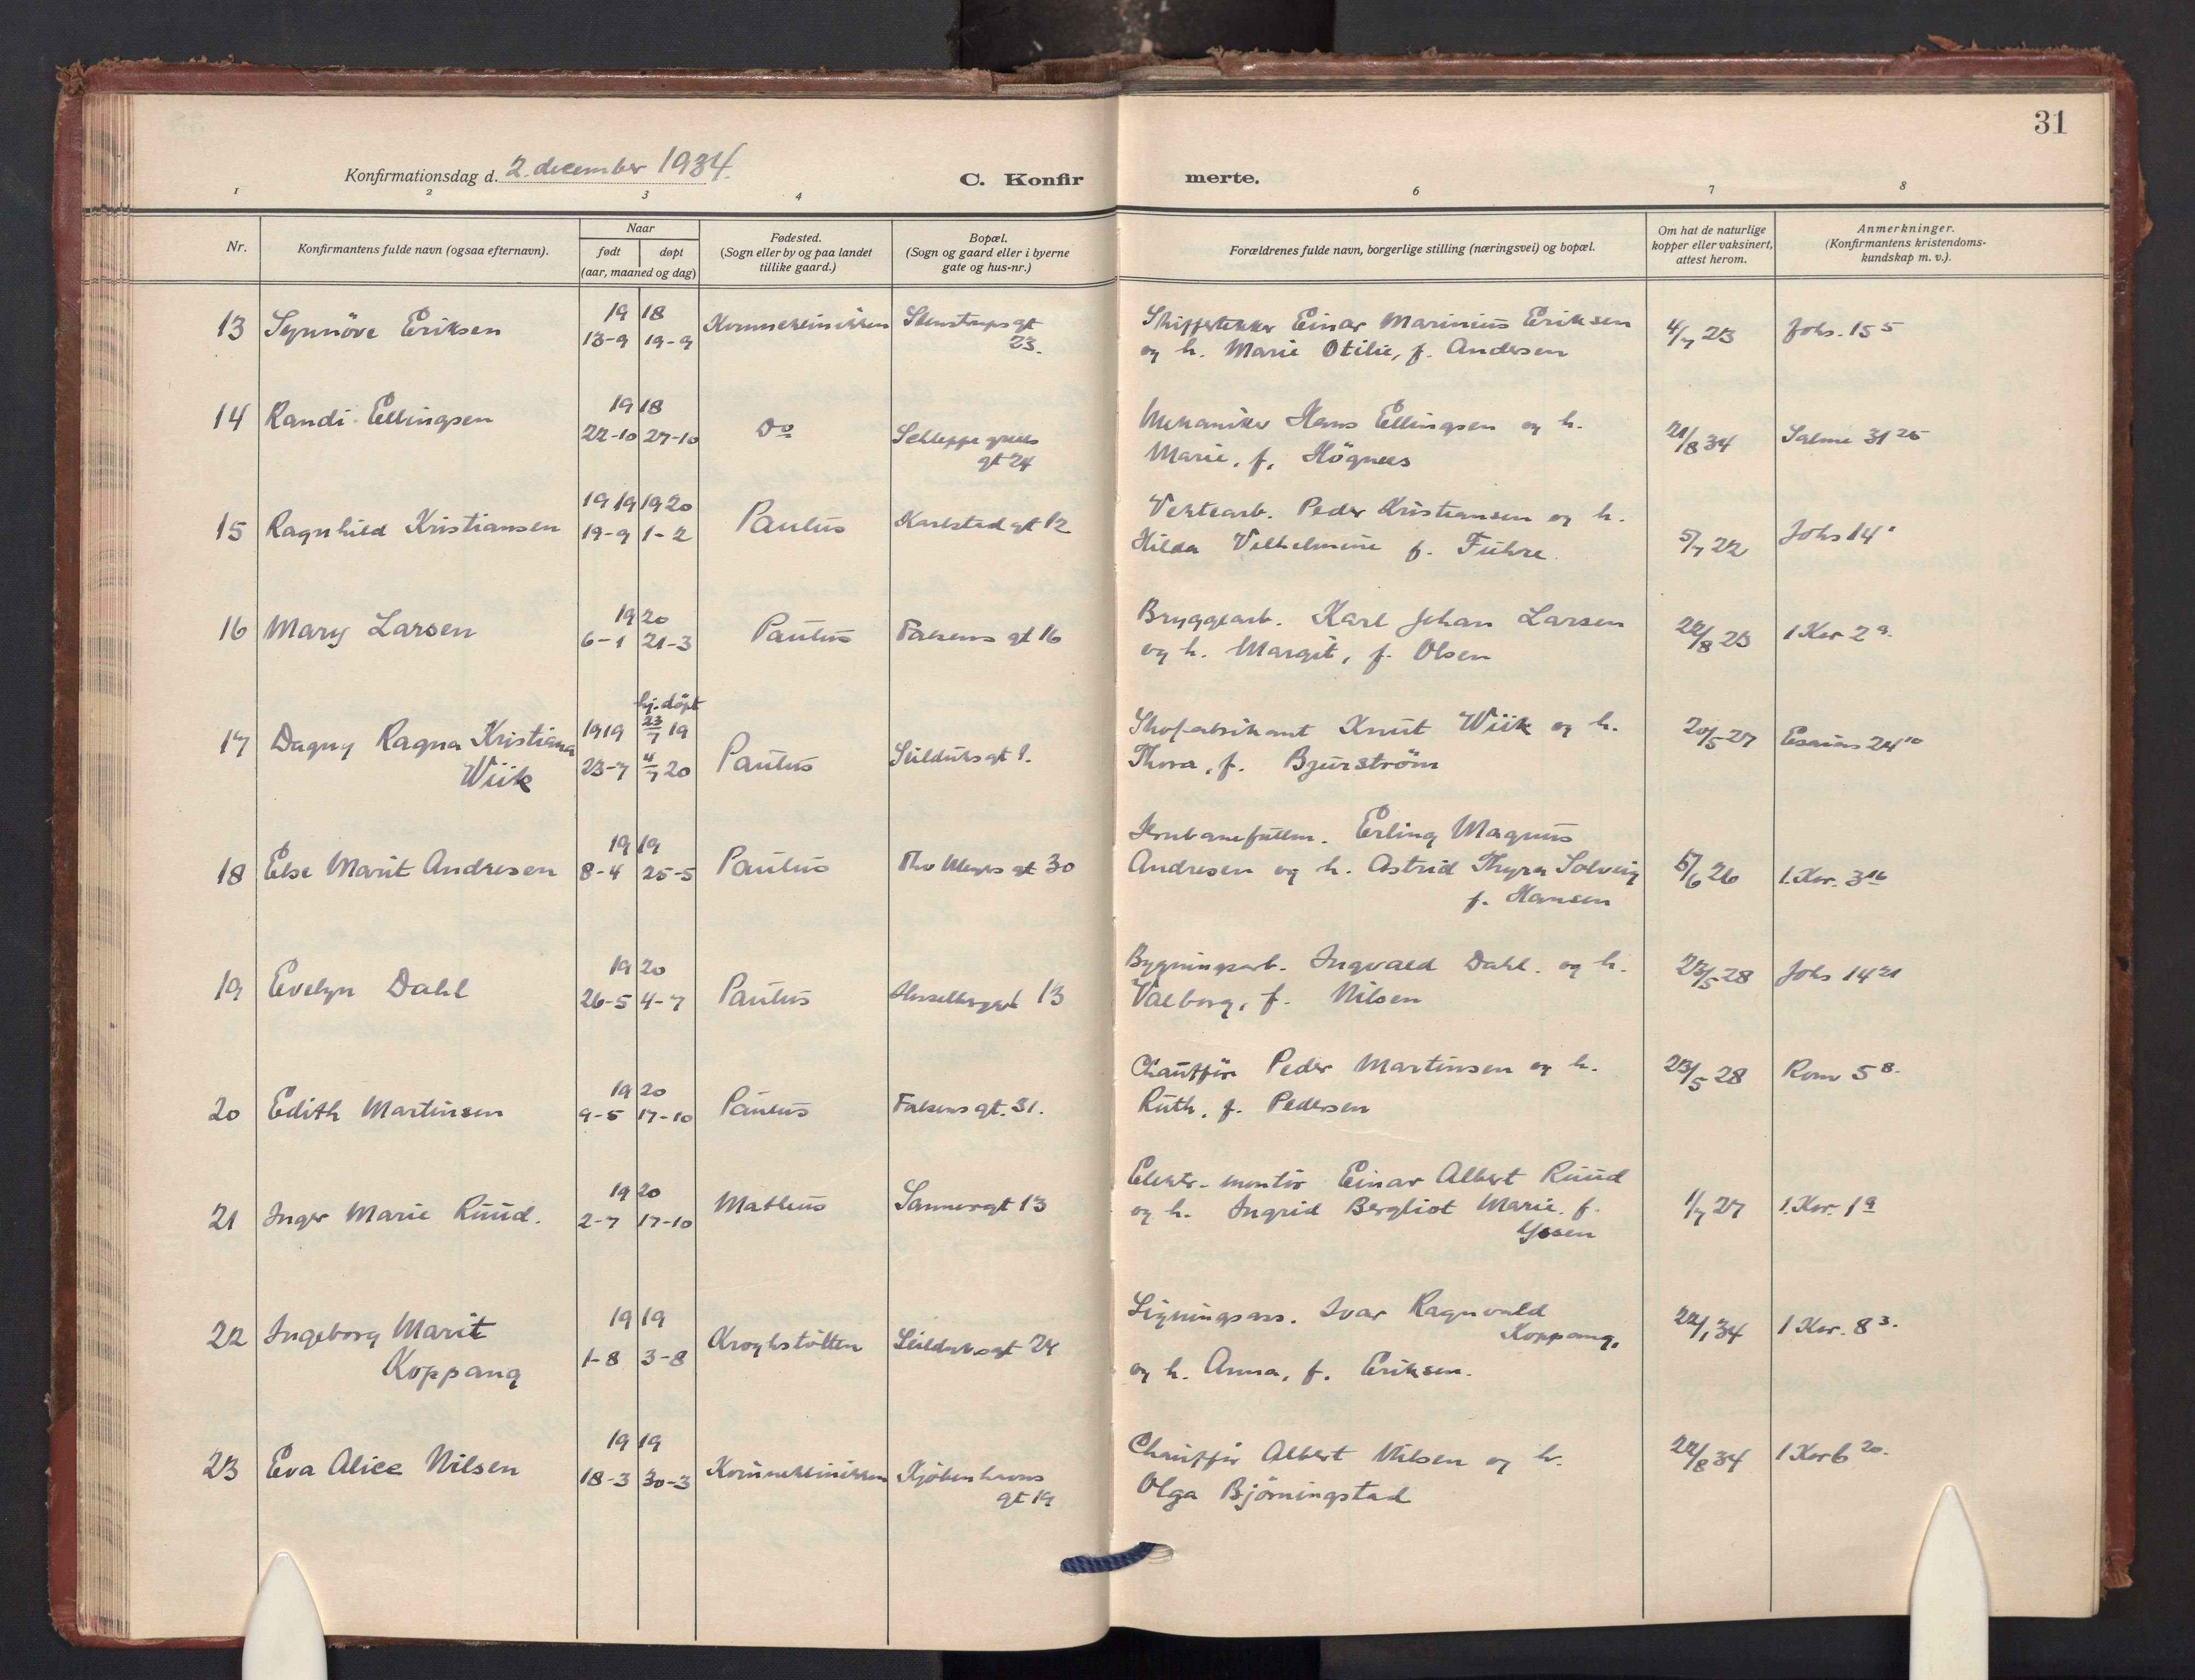 31
Konfirmationsdag d. 2. december 1934.
C. Konfirmerte.
1 2 3 4 6 7 8
Nr.
Konfirmantens fulde navn (ogsaa efternavn).
Naar
født døpt
(aar, maaned og dag)
Fødested.
(Sogn eller by og paa landet
tillike gaard.)
Bopæl.
(Sogn og gaard eller i byerne
gate og hus-nr.)
Forældrenes fulde navn, borgerlige stilling (næringsvei) og bopæl.
Om hat de naturlige
kopper eller vaksinert,
attest herom.
Anmerkninger.
(Konfirmantens kristendoms-
kundskap m. v.).
13 Synnöve Eriksen 19 18 Kvinneklinikken Stenstrupsgt Skiffertekker Einar Marinius Eriksen 4/7 23 Johs. 15 5
13-9 19-9 23. og h. Marie Otilie, f. Andersen
14 Randi Ellingsen 19 18 Do Schleppegrells Mekaniker Hans Ellingsen og h. 21/8 34 Salme 31 25
22-10 27-10 gt 24 Marie, f. Högnes
15 Ragnhild Kristiansen 19 19 19 20 Paulus Karlstadgt 12 Verktarb. Peder Kristiansen og h. 5/7 22 Johs 14
19-9 1-2 Hilda Vilhelmine f. Fuhre.
16 Mary Larsen 19 20 Paulus Falsens gt 16 Bryggearb. Karl Johan Larsen 22/8 23 1 Kor 2 9.
6-1 21-3 og h. Margit, f. Olsen
hj. döpt
17 Dagny Ragna Kristiana 1919 23/7 19 Paulus Seilduksgt 9. Skofabrikant Knut Wiik og h. 20/5 27 Esaias 24 10
Wiik 23-7 4/7 20 Thora, f. Bjurström
18 Else Marit Andresen 19 19 Paulus Thv Meyers gt 30 Jernbanefullm. Erling Magnus
8-4 25-5 Andresen og h. Astrid Thyra Solveig 5/6 26 1. Kor. 3 16
f. Hansen
19 Evelyn Dahl 19 20 Paulus Hesselbergsgt 13 Bygningsarb. Ingvald Dahl. og h. 23/5 28 Johs 14 21
26-5 4-7 Valborg, f. Nilsen
20 Edith Martinsen 19 20 Paulus Falsens gt. 31. Chaufför Peder Martinsen og h. 23/5 28 Rom 5 8.
9-5 17-10 Ruth, f. Pedersen
21 Inger Marie Ruud. 19 20 Matteus Sannergt 13 Elektr. montör Einar Albert Ruud 1/7 27 1. Kor. 1 9
2-7 17-10 og h. Ingrid Bergliot Marie. f.
22 Ingeborg Marit 19 19 Kroghstötten Seilduksgt 24 Ligningsass. Ivar Ragnvald 22/1 34 1 Kor. 8 3.
Koppang 1-8 3-8 Koppang,
og h. Anna, f. Eriksen.
23 Eva Alice Nilsen 19 19 Kvinneklinikken Kjöbenhavns Chaufför Albert Nilsen og h. 22/8 34 1 Kor 6 20.
18-3 30-3 gt 19 Olga Björningstad